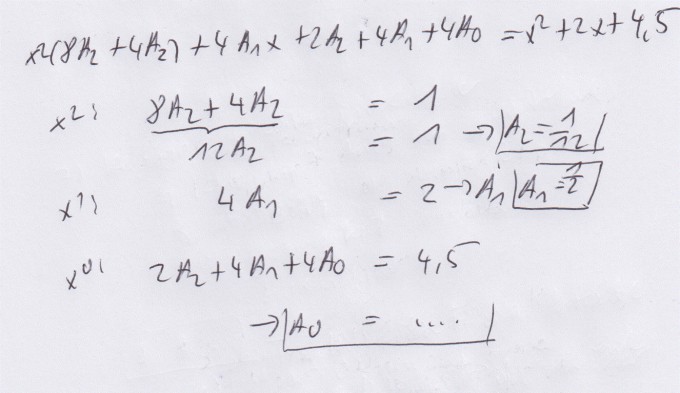 x²(8A₂ + 4A₂) + 4A₁x + 2A₂ + 4A₁ + 4A0 = x² + 2x + 4,5
x²: 8A₂ + 4A₂ = 1
12A₂ = 1 → A₂ = 1/12
x¹: 4A₁ = 2 → A₁ A₁ = 1/2
x⁰: 2A₂ + 4A₁ + 4A0 = 4,5
→ A0 = ....